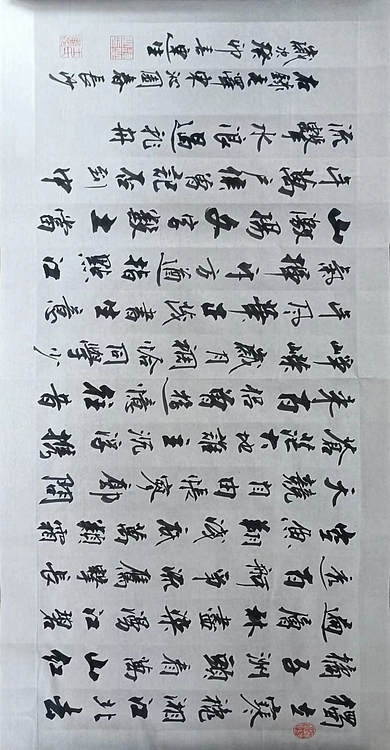 獨立寒秋湘江北去
橘子洲頭看萬山紅
遍層林盡染漫江碧
透百舸爭流鷹擊長
空魚翔淺底萬類霜
天競自由悵寥廓問
蒼茫大地誰主沉浮攜
來百侶曾遊憶往昔
崢嶸歲月稠恰同學少
年風華正茂書生意
氣揮斥方遒指點江
山激揚文字糞土當
年萬戶侯曾記否到中
流擊水浪遏飛舟
右錄毛澤東沁園春長沙
歲次癸卯